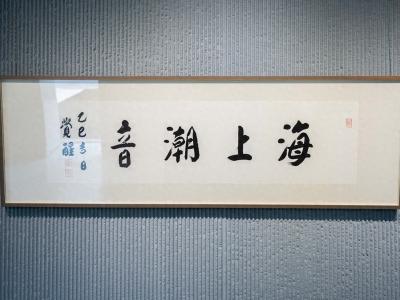 海上潮音
乙巳日
覺醒